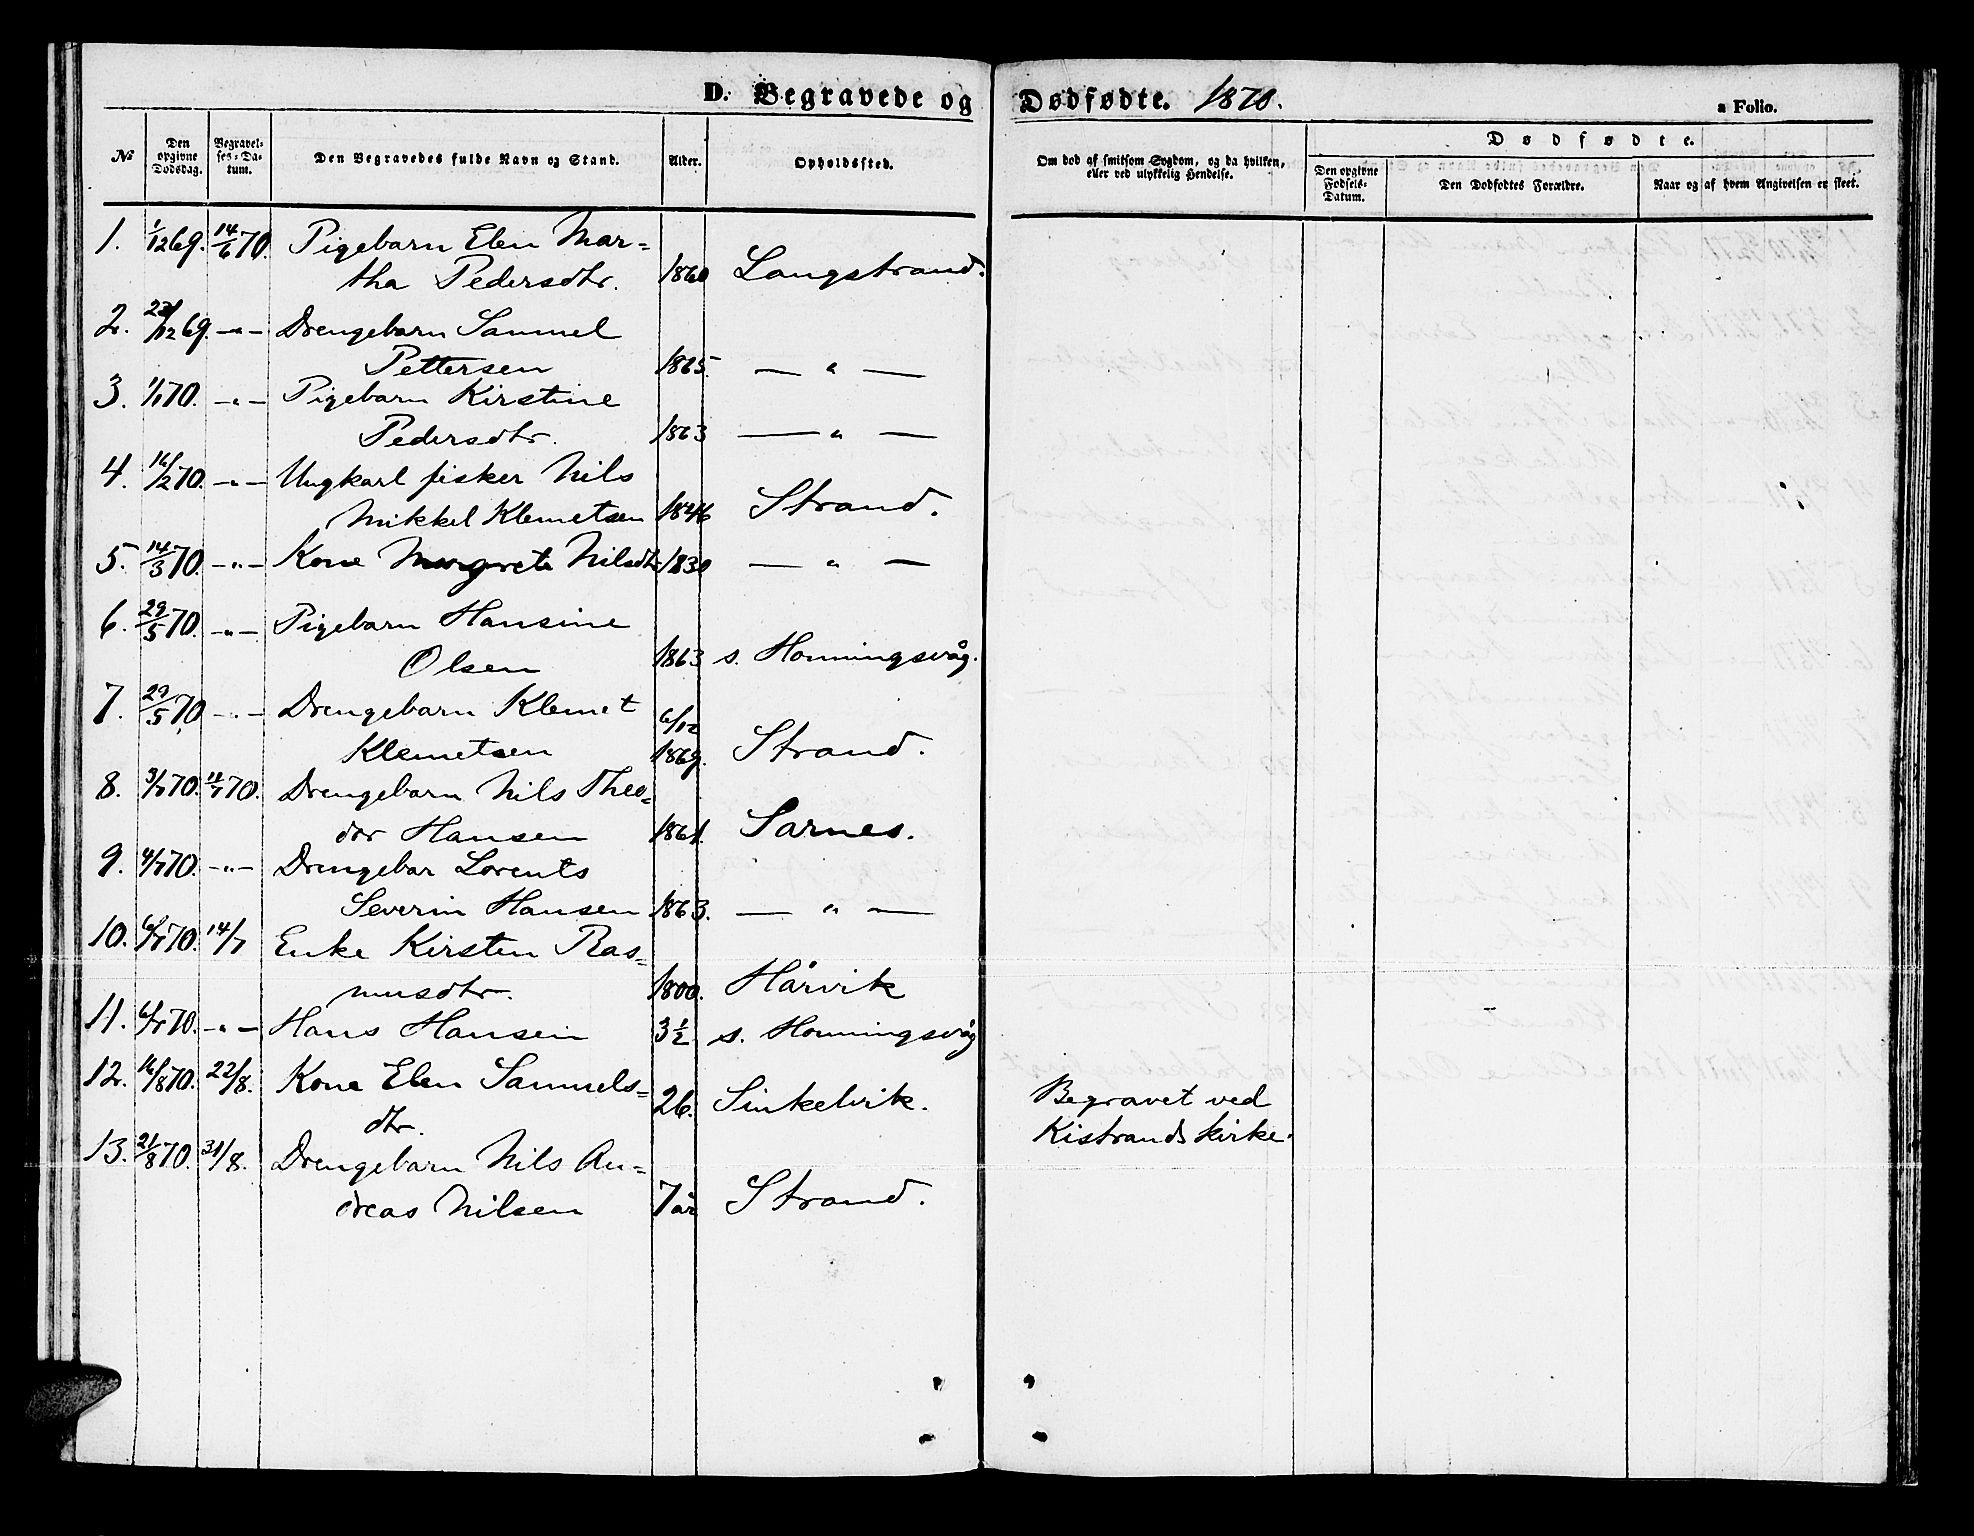 D. Begravede og Dødfødte. 1870.
a Folio.
№ Den opgivne Dødsdag. Begravelses-Datum. Den Begravedes fulde Navn og Stand. Alder. Opholdssted. Om død af smitsom Sygdom, og da hvilken, eller ved ulykkelig Hendelse.
Dødfødte.
Den opgivne Fødsels-Datum. Den Dødfødtes Forældre. Naar og af hvem Angivelsen er skeet.
1. 1/12 69. 14/6 70. Pigebarn Elen Mar=
tha Pedersdtr. 1860 Langstrand.
2. 23/12 69. —„— Drengebarn Samuel
Pettersen 1865. — „ —
3. 1/1 70. —„— Pigebarn Kirstine
Pedersdtr. 1863 — „ —
4. 16/2 70. —„— Ungkarl fisker Nils
Mikkel Klemetsen 1846 Strand.
5. 14/3 70. —„— Kone Margrete Nilsdtr 1830 — „ —
6. 29/5 70. —„— Pigebarn Hansine
Olsen 1863 s. Honningsvåg.
7. 29/5 70 —„— Drengebarn Klemet
Klemetsen 6/12 1869. Strand.
8. 3/7 70. 11/7 70. Drengebarn Nils Theo=
dor Hansen 1861. Sarnes.
9. 4/7 70. —„— Drengebar Lorents
Severin Hansen 1863. — „ —
10. 6/7 70. 14/7 Enke Kirsten Ras=
musdtr. 1800. Hårvik
11. 6/7 70. —„— Hans Hansen 3½ s. Honningsvåg
12. 16/8 70. 22/8. Kone Elen Samuels=
dtr. 26. Sinkelvik. Begravet ved
Kistrands kirke.
13. 21/8 70. 31/8. Drengebarn Nils An=
dreas Nilsen 7 år Strand.